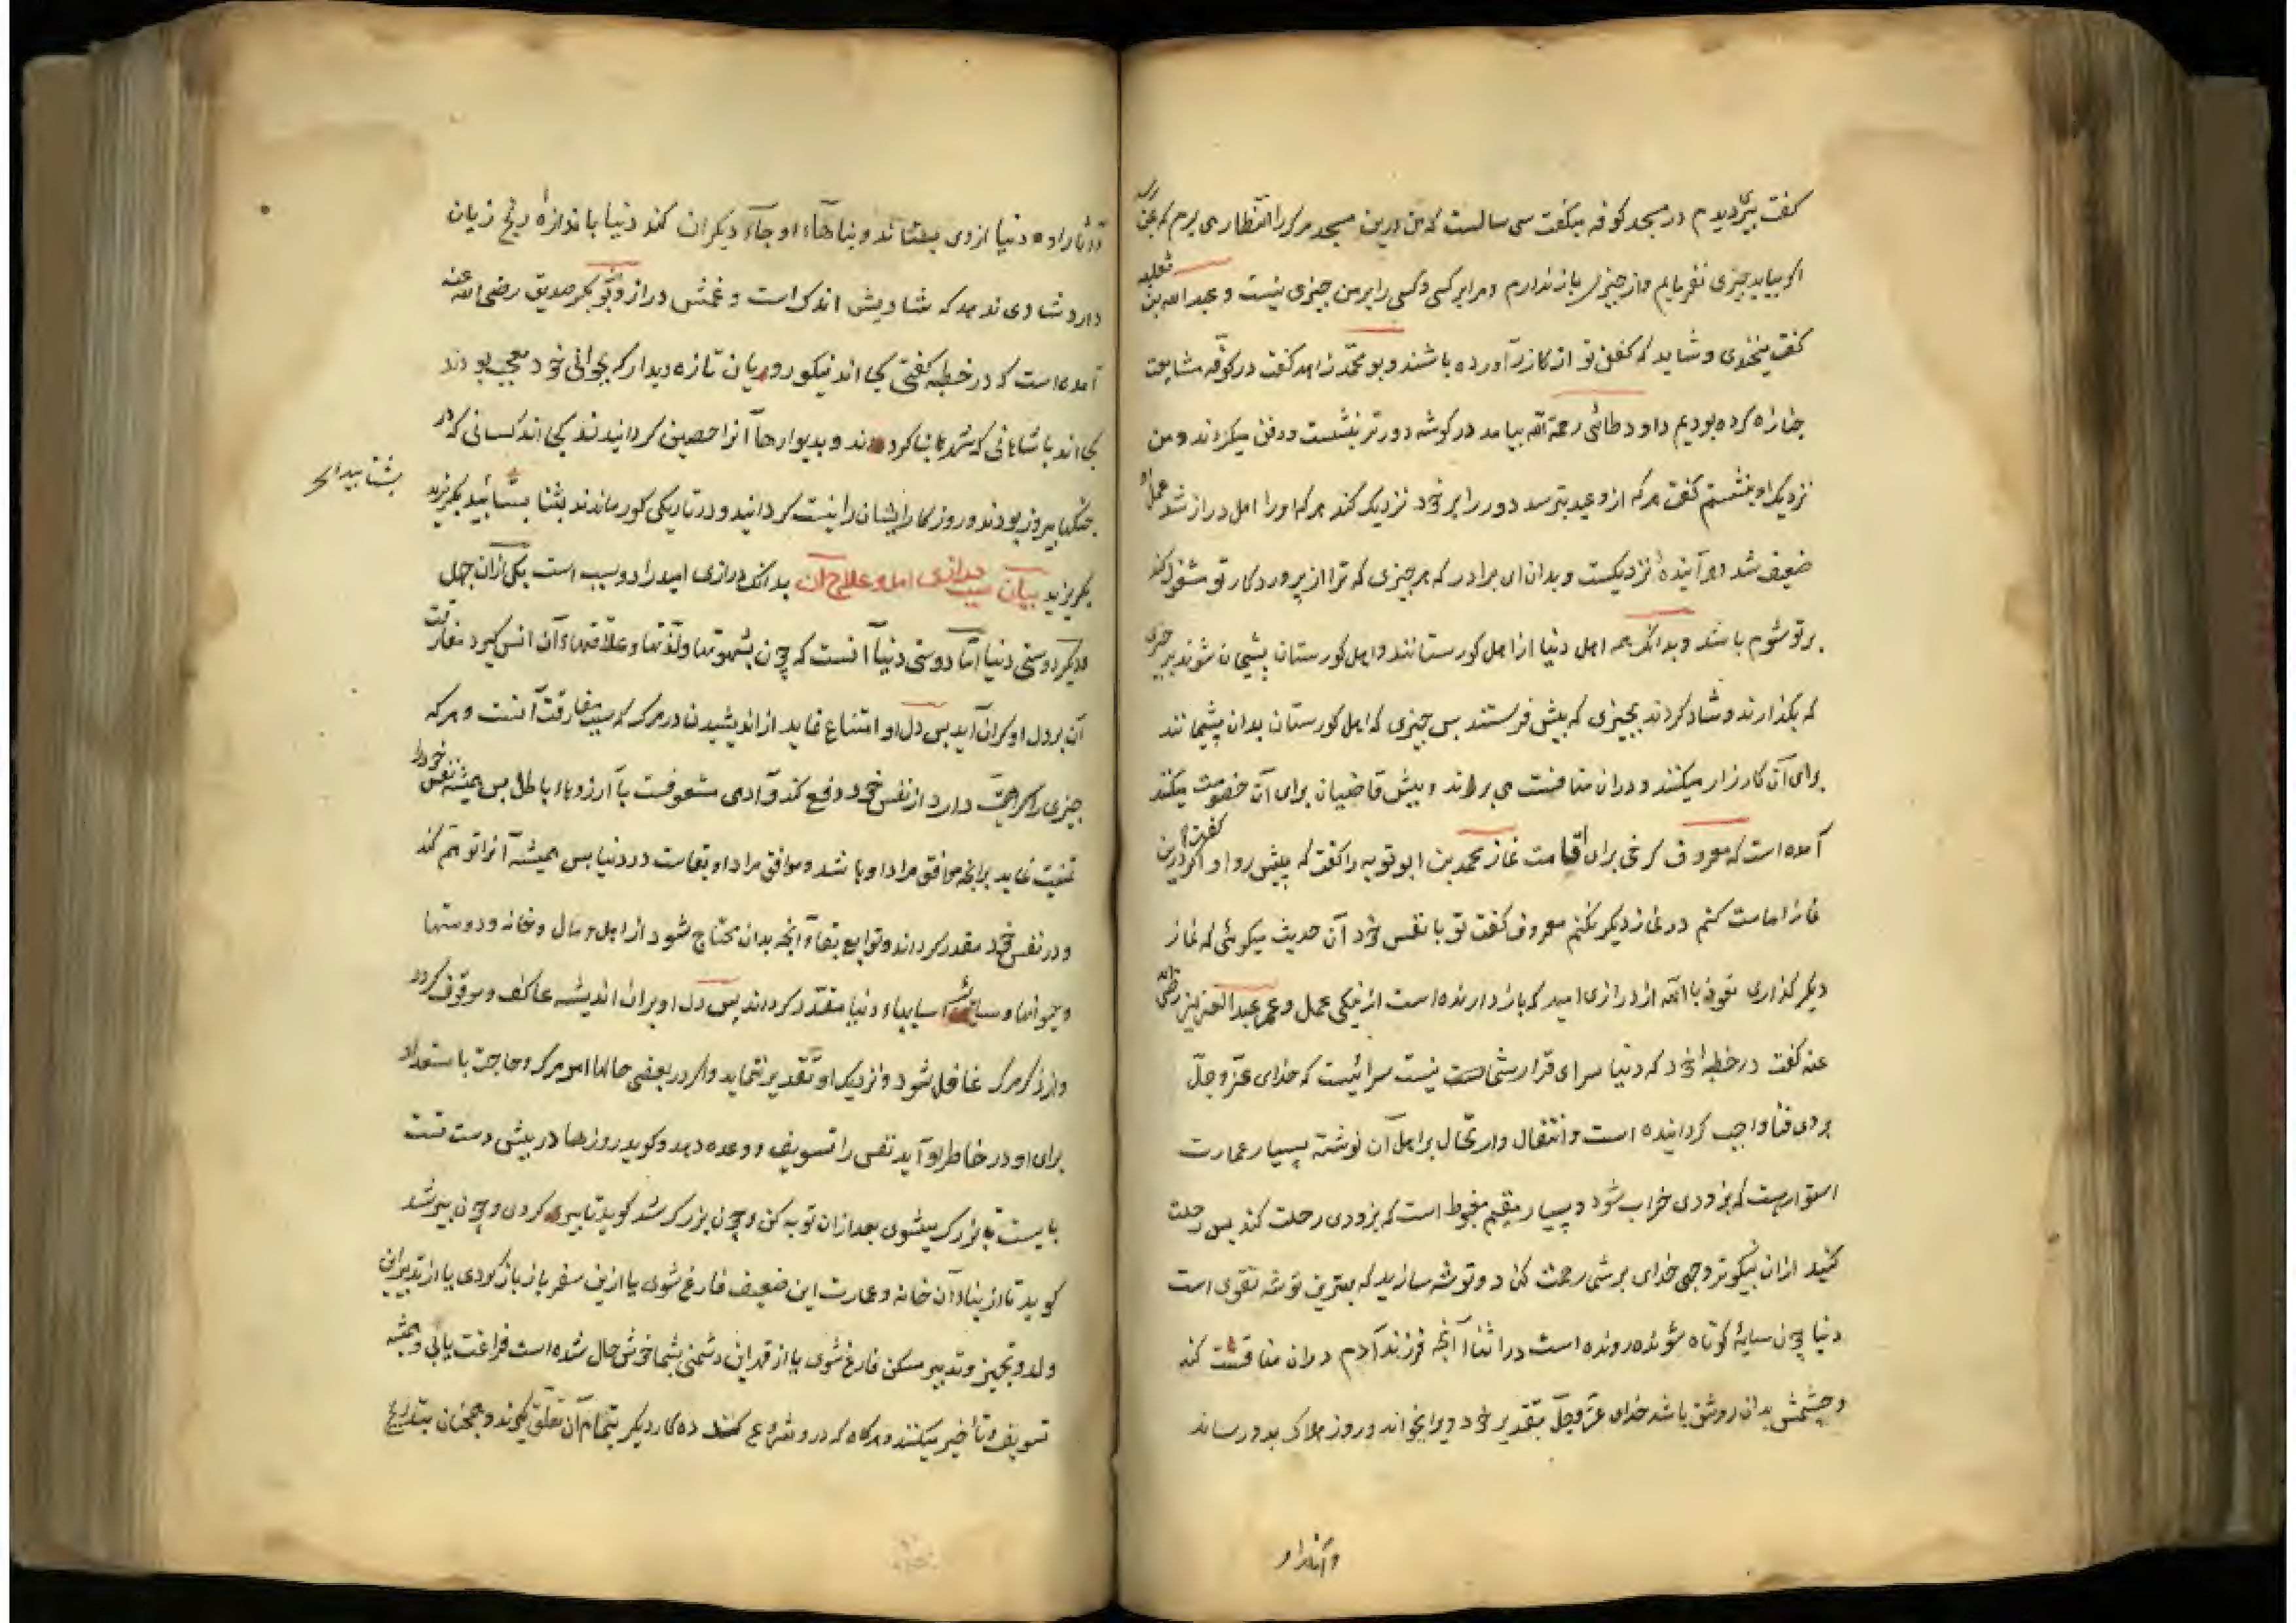 گفت پیری دیدم در مسجد کوفه میگفت سی سالست که من درین مسجد مرک را انتظار می برم که بمن رسد
اگر بیاید چیزی نفرمایم و از چیزی باز ندارم و مرا بر کسی و کسی را بر من چیزی نیست و عبد الله بن ثعلبه
گفت میخندی و شاید که کفن تو از کازر آورده باشند و بو محمد زاهد گفت در کوفه مشایعت
جنازه کرده بودیم داود طائی رحمة الله بیامد در کوشه دورتر بنشست و دفن میکردند و من
نزدیک او بنشستم گفت هر که از وعید بترسد دور را بر خود نزدیک کند هر که او را امل دراز شد عمل او
ضعیف شد و هر آینده نزدیکست و بدان ای برادر که هر چیزی که ترا از پروردکار تو مشغول کند
بر تو شوم باشد و بدانک همه اهل دنیا از اهل کورستانند و اهل کورستان پشیمان شوند بر چیزی
که بگذارند و شاد کردند بچیزی که بیش فرستند بس چیزی که اهل کورستان بدان پشیمانند
برای آن کارزار میکنند و دران منافست می برند و بیش قاضیان برای آن خصومت میکنند
آمده است که معروف کرخی برای اقامت نماز محمد بن ابو توبه را گفت که پیش رو او گفت اگر درین
نماز امامت کنم در نماز دیگر نکنم معروف گفت تو با نفس خود آن حدیث میکوئی که نماز
دیگر گذاری نعوذ بالله از درازی امید که باز دارنده است از نیکی عمل و عمر عبد العزیز رضی الله
عنه گفت در خطبهٔ خود که دنیا سرای قرار شما نیست سرائیست که خدای عزّ و جلّ
بر وی فنا واجب کردانیده است و انتقال و ارتحال بر اهل آن نوشته بسیار عمارت
استوارست که بزودی خراب شود و بسیار مقیم مغبوط است که بزودی رحلت کند بس رحلت
کنید ازان بنیکوتر وجهی خدای بر شما رحمت کناد و توشه سازید که بهترین توشه تقوی است
دنیا چون سایهٔ کوتاه شونده رونده است در اثنا آنچه فرزند آدم دران منافست کند
و چشمش بدان روشن باشد خدای عزّ و جلّ بتقدیر خود ویرا بخواند و روز هلاک بدو رساند
و آثار او
و آثار او و دنیا از وی بستانند و بناهاء او جاء دیکران کند دنیا باندازهٔ رنج زیان
دارد شادی ندهد که شادیش اندک است و غمش دراز و بو بکر صدیق رضی الله عنه
آمده است که در خطبه گفتی کجا اند نیکو رویان تازه دیدار که بجوانی خود معجب بودند
کجا اند پادشاهانی که شهرها بنا کردند و بدیوارها آنرا حصین کردانیدند کجا اند کسانی که در
جنکها پیروز بودند و روزکار ایشان را نیست کردانید و در تاریکی کور ماندند بشتابید بکریزید
بشتابید
بکریزید بیان سبب درازی امل و علاج آن بدانک درازی امید را دو سبب است یکی ازان جهل
و دیگر دوستی دنیا امّا دوستی دنیا آنست که چون بشهوتها و لذّتها و علاقتهاء آن انس کیرد مفارقت
آن بر دل او کران آید بس دل او امتناع نماید از اندیشیدن در مرک که سبب مفارقت آنست و هر که
چیزی را کراهیت دارد از نفس خود دفع کند و آدمی مشعوفست بآرزوهاء باطل بس همیشه نفس خود را
تمنیت نماید بر آنچه موافق مراد او باشد و موافق مراد او بقاست در دنیا بس همیشه آنرا توهّم کند
و در نفس خود مقدر کرداند و توابع بقا و آنچه بدان محتاج شود از اهل و مال و خانه و دوستها
و حیوانها و سایر اسبابهاء دنیا مقدّر کرداند بس دل او بران اندیشه عاکف و موقوف کردد
و از ذکر مرک غافل شود و نزدیک او تقدیر ننماید و اگر در بعضی حالها امور مرک و حاجت باستعداد
برای او در خاطر او آید نفس را تسویف و وعده دهد و کوید روزها در پیش دست تست
بایست تا بزرک میشوی بعد ازان توبه کن و چون بزرک شد کوید تا پیری کردی و چون پیر شد
کوید تا از بناء آن خانه و عمارت این ضعیف فارغ شوی یا ازین سفر باز باز کردی یا از تدبیر این
ولد و تجهیز و تدبیر مسکن فارغ شوی یا از قهر این دشمنی بشما خوش حال شده است فراغت یابی و همیشه
تسویف و تأخیر میکنند و هرگاه که در و شروع کند ده کار دیگر بتمام آن تعلّق کیرد و همچنان بتدریج